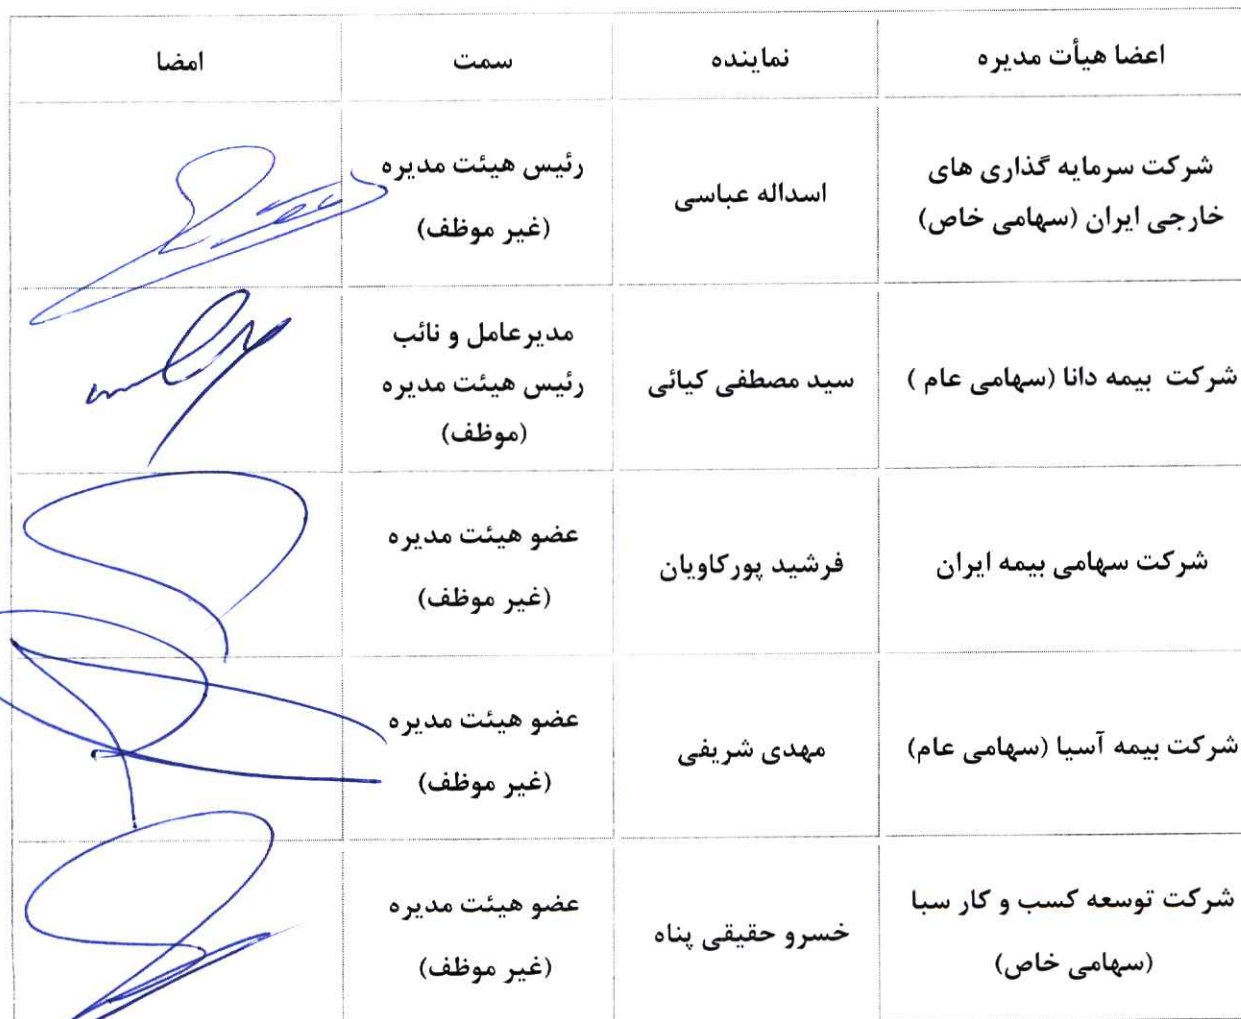 اعضا هیأت مدیره
نماینده
سمت
امضا
شرکت سرمایه گذاری های
خارجی ایران (سهامی خاص)
اسداله عباسی
رئیس هیئت مدیره
(غیر موظف)
شرکت بیمه دانا (سهامی عام )
سید مصطفی کیائی
مدیرعامل و نائب
رئیس هیئت مدیره
(موظف)
شرکت سهامی بیمه ایران
فرشید پورکاویان
عضو هیئت مدیره
(غیر موظف)
شرکت بیمه آسیا (سهامی عام)
مهدی شریفی
عضو هیئت مدیره
(غیر موظف)
شرکت توسعه کسب و کار سبا
(سهامی خاص)
خسرو حقیقی پناه
عضو هیئت مدیره
(غیر موظف)